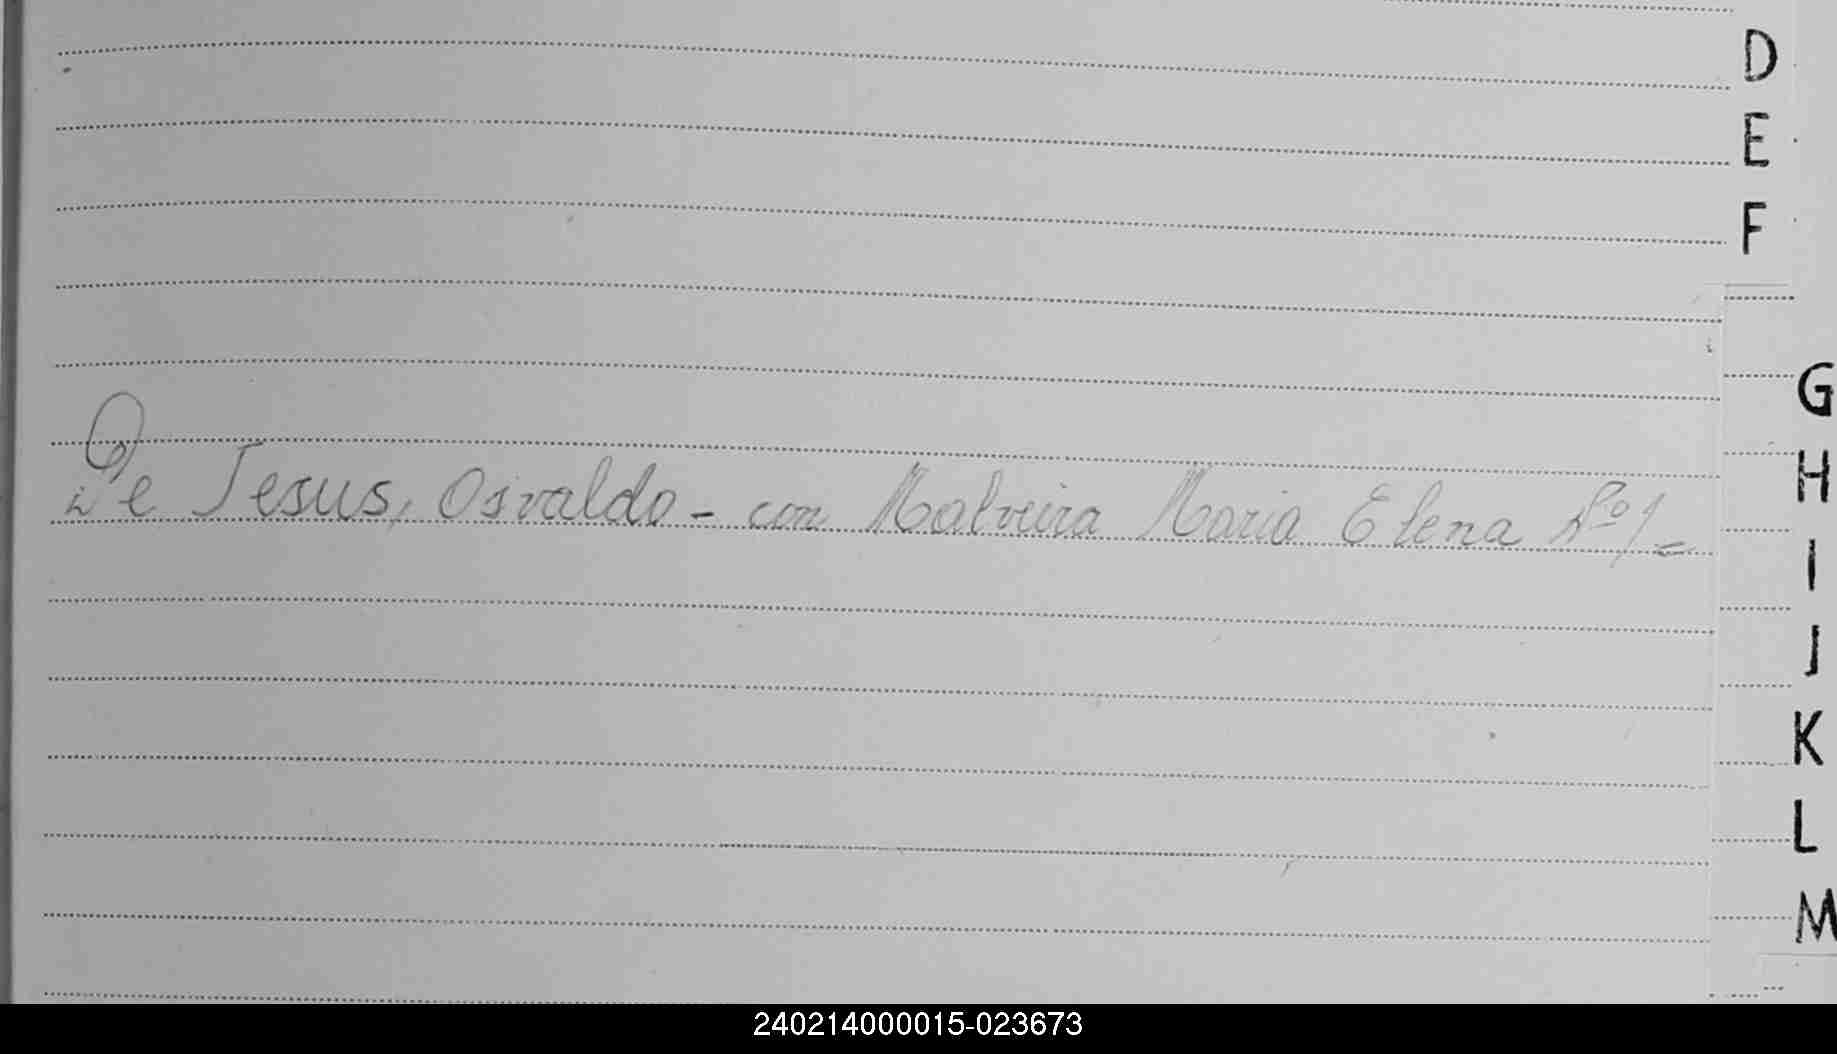 D
E
F
G
H
De Jesus, Osvaldo - con Malveira Maria Elena Nº 1 =
I
J
K
L
M
240214000015-023673